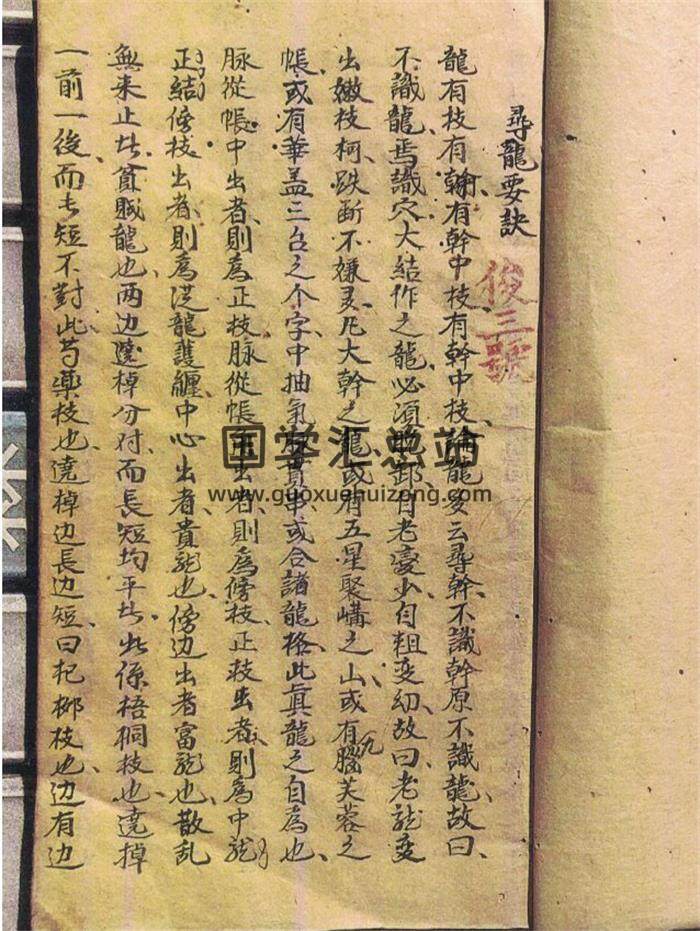 尋龍要訣
俊三號
龍有枝有幹有幹中枝有幹中枝論龍多云尋幹不識幹原不識龍故曰
不識龍焉識穴大結作之龍必須脫卸自老变少自粗变幼故曰老龍变
出嫩枝柯跌断不嫌灵凡大幹之龍或有五星聚講之山或有九腦芙蓉之
帳或有華盖三台之个字中抽氣脉貫串或合諸龍格此眞龍之自為也
脉從帳中出者則為正枝脉從帳出者則為傍枝正枝出者則為中龍
正結傍枝出者則為從龍護纏中心出者貴龍也傍边出者富龍也散乱
無来止此貧賎龍也两边蹺棹分对而長短均平此係梧桐枝也蹺棹
一前一後而長短不對此芍藥枝也蹺棹边長边短曰杞柳枝也边有边
国学汇总站
www.guoxuehuizong.com